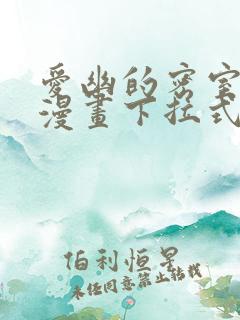 愛幽的密室
漫畫下拉式
伯利恒星
未经同意禁止转载